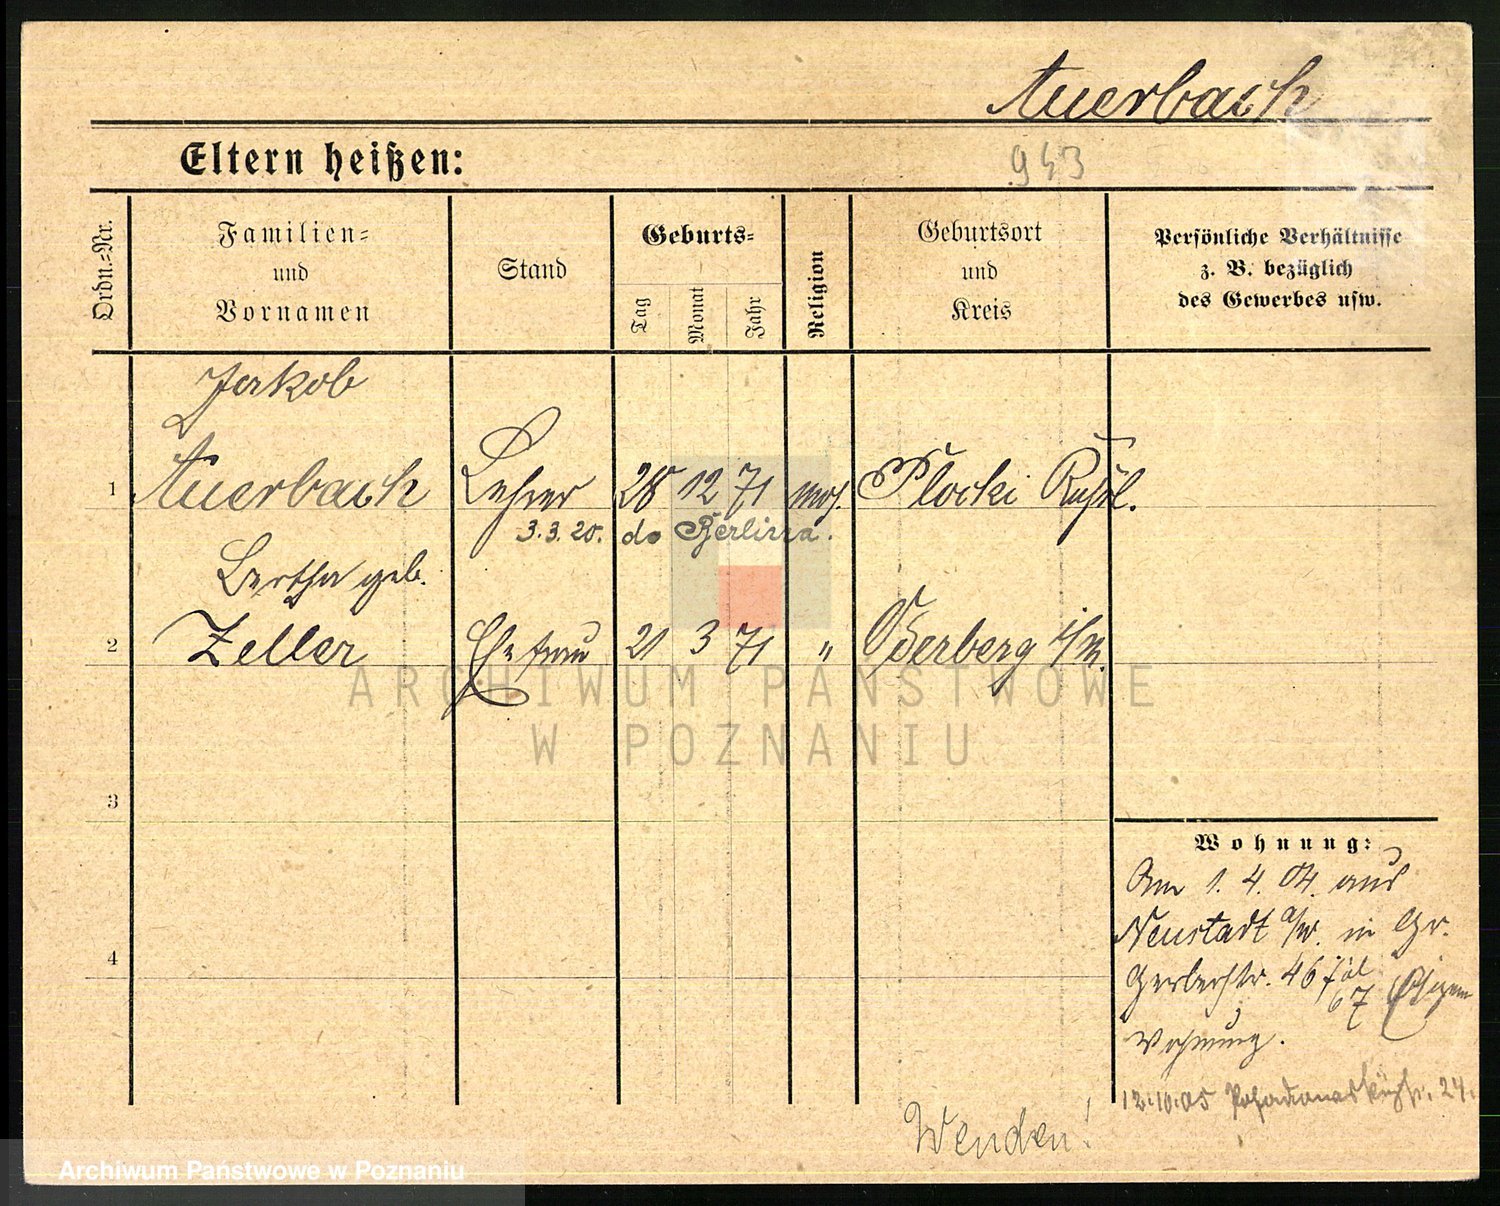 Auerbach
Eltern heißen:
943
Ordn.-Nr.
Familien-
und
Vornamen
Stand
Geburts-
Tag
Monat
Jahr
Religion
Geburtsort
und
Kreis
Persönliche Verhältnisse
z. B. bezüglich
des Gewerbes usw.
Jakob
1 Auerbach Lehrer 28 12 71 mos. Plocki Rußl.
3.3.20. do Berlina.
Bertha geb.
2 Zeller Ehefrau 21 3 71 " Oderberg i/M.
ARCHIWUM PAŃSTWOWE
W POZNANIU
3
Wohnung:
Am 1. 4. 04. aus
Neustadt a/W. in Gr.
4
Gerberstr. 46
67
Wohnung.
12.10.05 24.
Wenden!
Archiwum Państwowe w Poznaniu